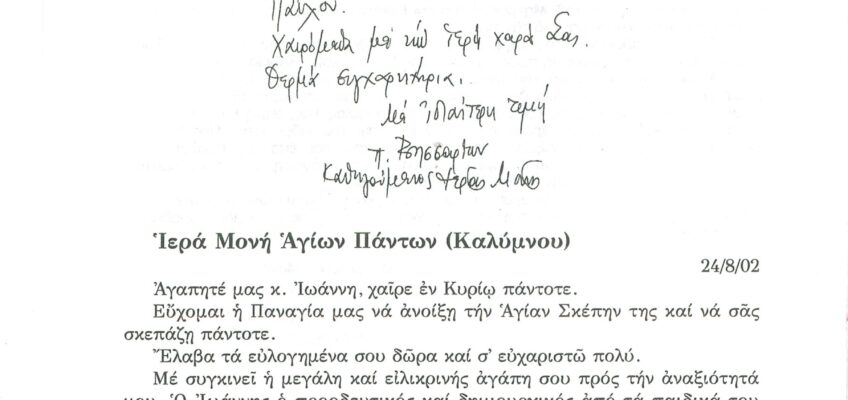 Παῦλον.
Χαιρόμεθα μέ τήν Ἱερή χαρά Σας.
Θερμά συγχαρητήρια.
Μέ ἰδιαίτερη τιμή
π. Βησσαρίων
Καθηγούμενος Ἱερᾶς Μονῆς
Ἱερά Μονή Ἁγίων Πάντων (Καλύμνου)
24/8/02
Ἀγαπητέ μας κ. Ἰωάννη, χαῖρε ἐν Κυρίῳ πάντοτε.
Εὔχομαι ἡ Παναγία μας νά ἀνοίξῃ τήν Ἁγίαν Σκέπην της καί νά σᾶς
σκεπάζῃ πάντοτε.
Ἔλαβα τά εὐλογημένα σου δῶρα καί σ’ εὐχαριστῶ πολύ.
Μέ συγκινεῖ ἡ μεγάλη καί εἰλικρινής ἀγάπη σου πρός τήν ἀναξιότητά
μου. Ὁ Ἰωάννης ὁ προοδευτικός καί δημιουργικός ἀπό τά παιδικά του